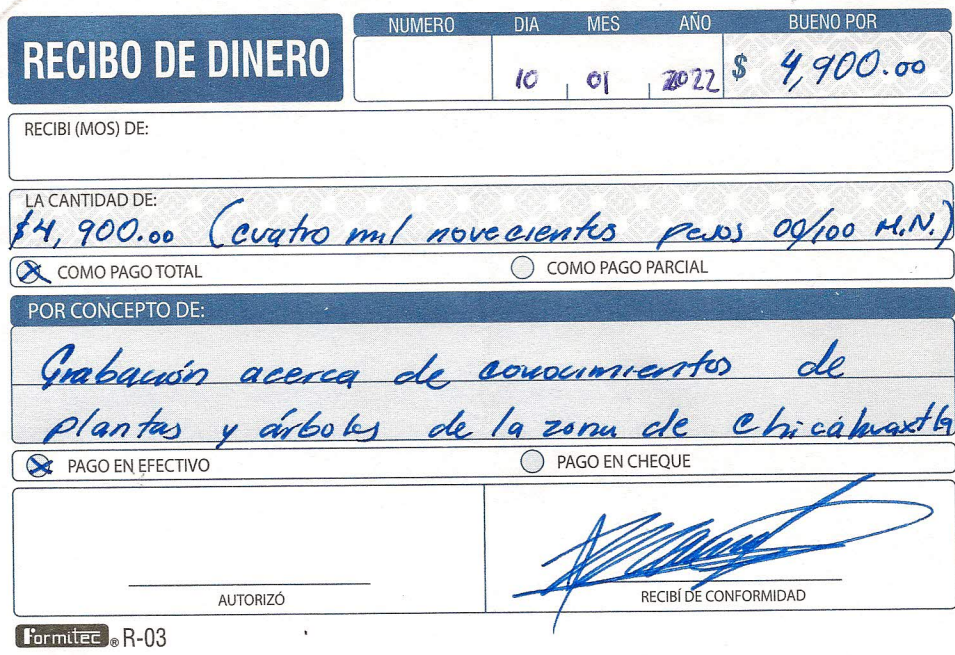 RECIBO DE DINERO
NUMERO DIA MES AÑO BUENO POR
10 01 2022 $ 4,900.00
RECIBI (MOS) DE:
LA CANTIDAD DE:
$4,900.00 (cuatro mil novecientos pesos 00/100 M.N.)
COMO PAGO TOTAL COMO PAGO PARCIAL
POR CONCEPTO DE:
Grabación acerca de conocimientos de
plantas y árboles de la zona de Chicahuaxtla
PAGO EN EFECTIVO PAGO EN CHEQUE
AUTORIZÓ RECIBÍ DE CONFORMIDAD
Formitec ® R-03